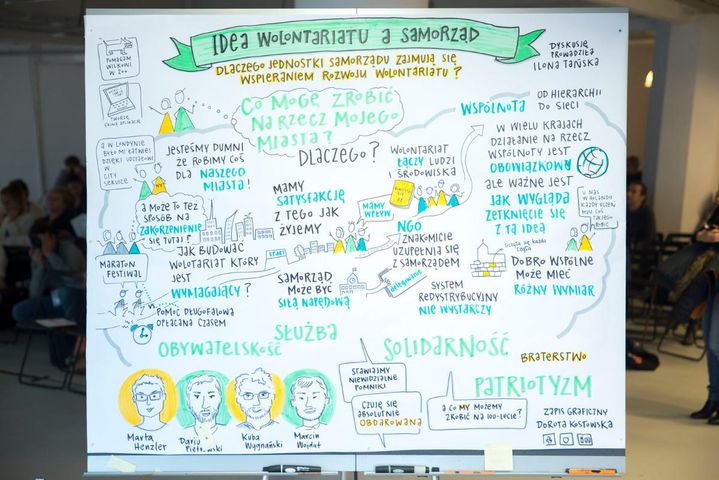 IDEA WOLONTARIATU A SAMORZĄD
DLACZEGO JEDNOSTKI SAMORZĄDU ZAJMUJĄ SIĘ
WSPIERANIEM ROZWOJU WOLONTARIATU?
DYSKUSJĘ
PROWADZIŁA
ILONA TAŃSKA
POMAGAM
WILKOWI
W ZOO
TWORZĘ
FAJNE APLIKACJE
CO MOGĘ ZROBIĆ
NA RZECZ MOJEGO
MIASTA?
DLACZEGO?
WSPÓLNOTA
OD HIERARCHII
DO SIECI
A W LONDYNIE
BYŁO MI ŁATWIEJ
DZIĘKI UDZIAŁOWI
W CITY
SERVICE
JESTEŚMY DUMNI
ŻE ROBIMY COŚ
DLA NASZEGO
MIASTA!
WOLONTARIAT
ŁĄCZY LUDZI
I ŚRODOWISKA
W WIELU KRAJACH
DZIAŁANIE NA RZECZ
WSPÓLNOTY JEST
OBOWIĄZKOWE
ALE WAŻNE JEST
JAK WYGLĄDA
ZETKNIĘCIE SIĘ
Z TĄ IDEĄ
U NAS
W HOLANDII
KAŻDY UCZEŃ
MUSI COŚ
TAKIEGO
ROBIĆ
NY
A MOŻE TO TEŻ
SPOSÓB NA
ZAKORZENIENIE
SIĘ TUTAJ?
MAMY
SATYSFAKCJĘ
Z TEGO JAK
ŻYJEMY
MAMY
WPŁYW
NGO
ZNAKOMICIE
UZUPEŁNIA SIĘ
Z SAMORZĄDEM
LICZY SIĘ KAŻDA
CZĘŚĆ
MARATON
FESTIWAL
JAK BUDOWAĆ
WOLOTARIAT KTÓRY
JEST
WYMAGAJĄCY?
START
SAMORZĄD
MOŻE BYĆ
SIŁĄ NAPĘDOWĄ
delegowanie
SYSTEM
REDYSTRYBUCYJNY
NIE WYSTARCZY
DOBRO WSPÓLNE
MOŻE MIEĆ
RÓŻNY WYMIAR
POMOC DŁUGOFALOWA
OPŁACANA CZASEM
OBYWATELSKOŚĆ
SŁUŻBA
SOLIDARNOŚĆ
BRATERSTWO
PATRIOTYZM
STAWIAJMY
NIEWIDZIALNE
POMNIKI
CZUJĘ SIĘ
ABSOLUTNIE
OBDAROWANA
A CO MY MOŻEMY
ZROBIĆ NA 100-LECIE?
Marta
Henzler
Kuba
Wygnański
Marcin
Wojdat
ZAPIS GRAFICZNY
DOROTA KOSTOWSKA